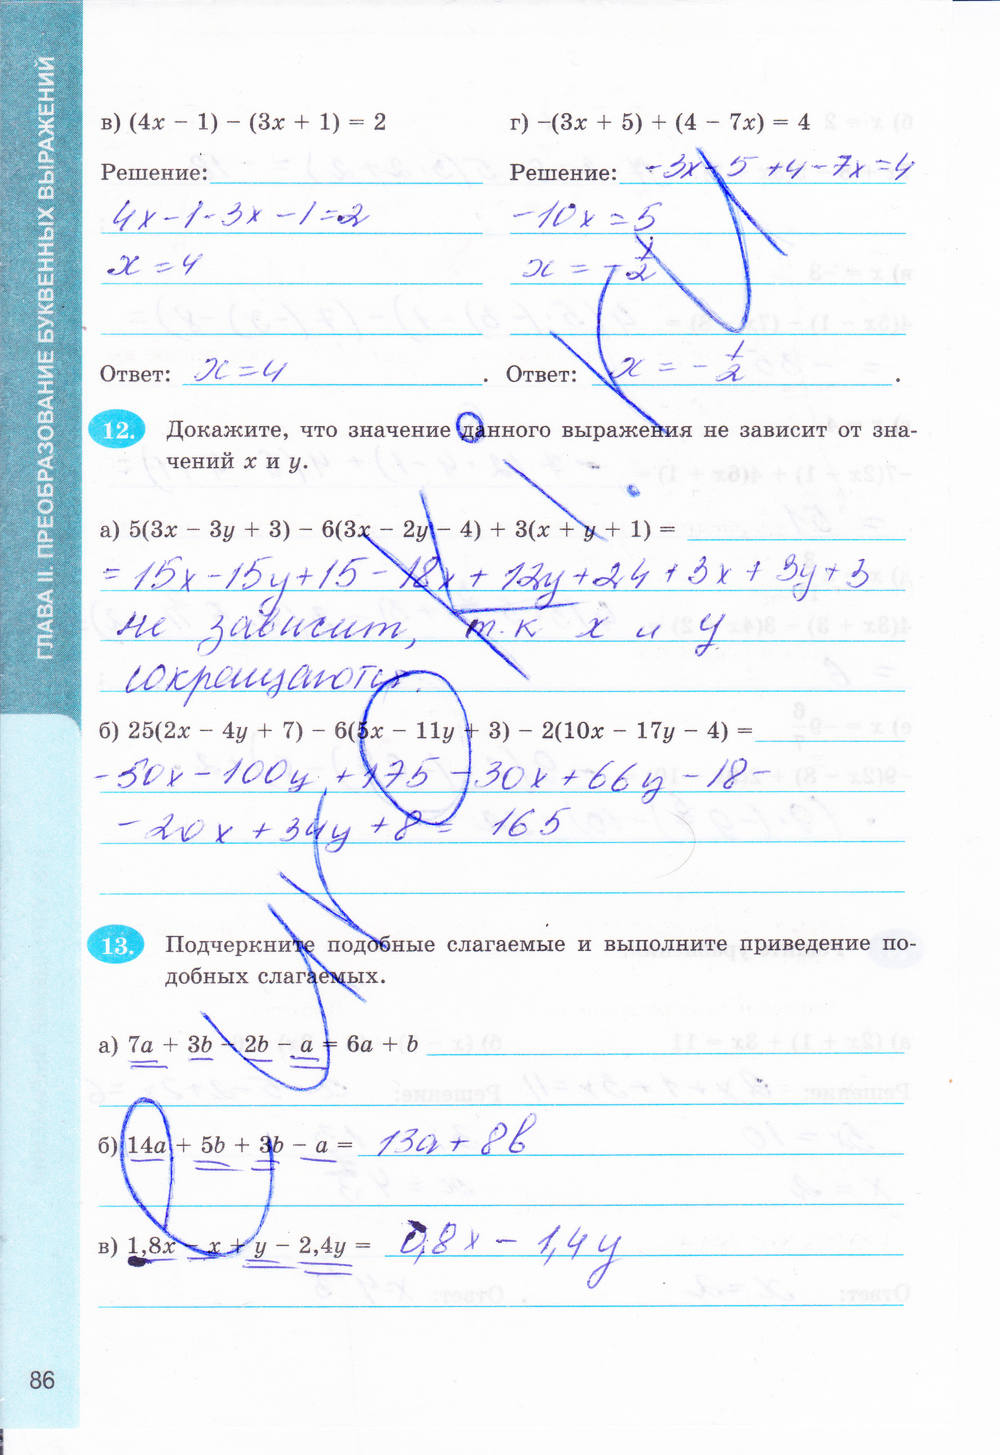 ГЛАВА II. ПРЕОБРАЗОВАНИЕ БУКВЕННЫХ ВЫРАЖЕНИЙ
в) (4x − 1) − (3x + 1) = 2
Решение:
4x − 1 − 3x − 1 = 2
x = 4
Ответ: x = 4.
г) −(3x + 5) + (4 − 7x) = 4
Решение: −3x − 5 + 4 − 7x = 4
−10x = 5
x = −1/2
Ответ: x = −1/2.
12. Докажите, что значение данного выражения не зависит от зна-
чений x и y.
а) 5(3x − 3y + 3) − 6(3x − 2y − 4) + 3(x + y + 1) =
= 15x − 15y + 15 − 18x + 12y + 24 + 3x + 3y + 3
не зависит, т.к x и y
сокращаются.
б) 25(2x − 4y + 7) − 6(5x − 11y + 3) − 2(10x − 17y − 4) =
− 50x − 100y + 175 − 30x + 66y − 18 −
− 20x + 34y + 8 = 165
13. Подчеркните подобные слагаемые и выполните приведение по-
добных слагаемых.
а) 7a + 3b − 2b − a = 6a + b
б) 14a + 5b + 3b − a = 13a + 8b
в) 1,8x − x + y − 2,4y = 0,8x − 1,4y
86
PUKOKI.RU